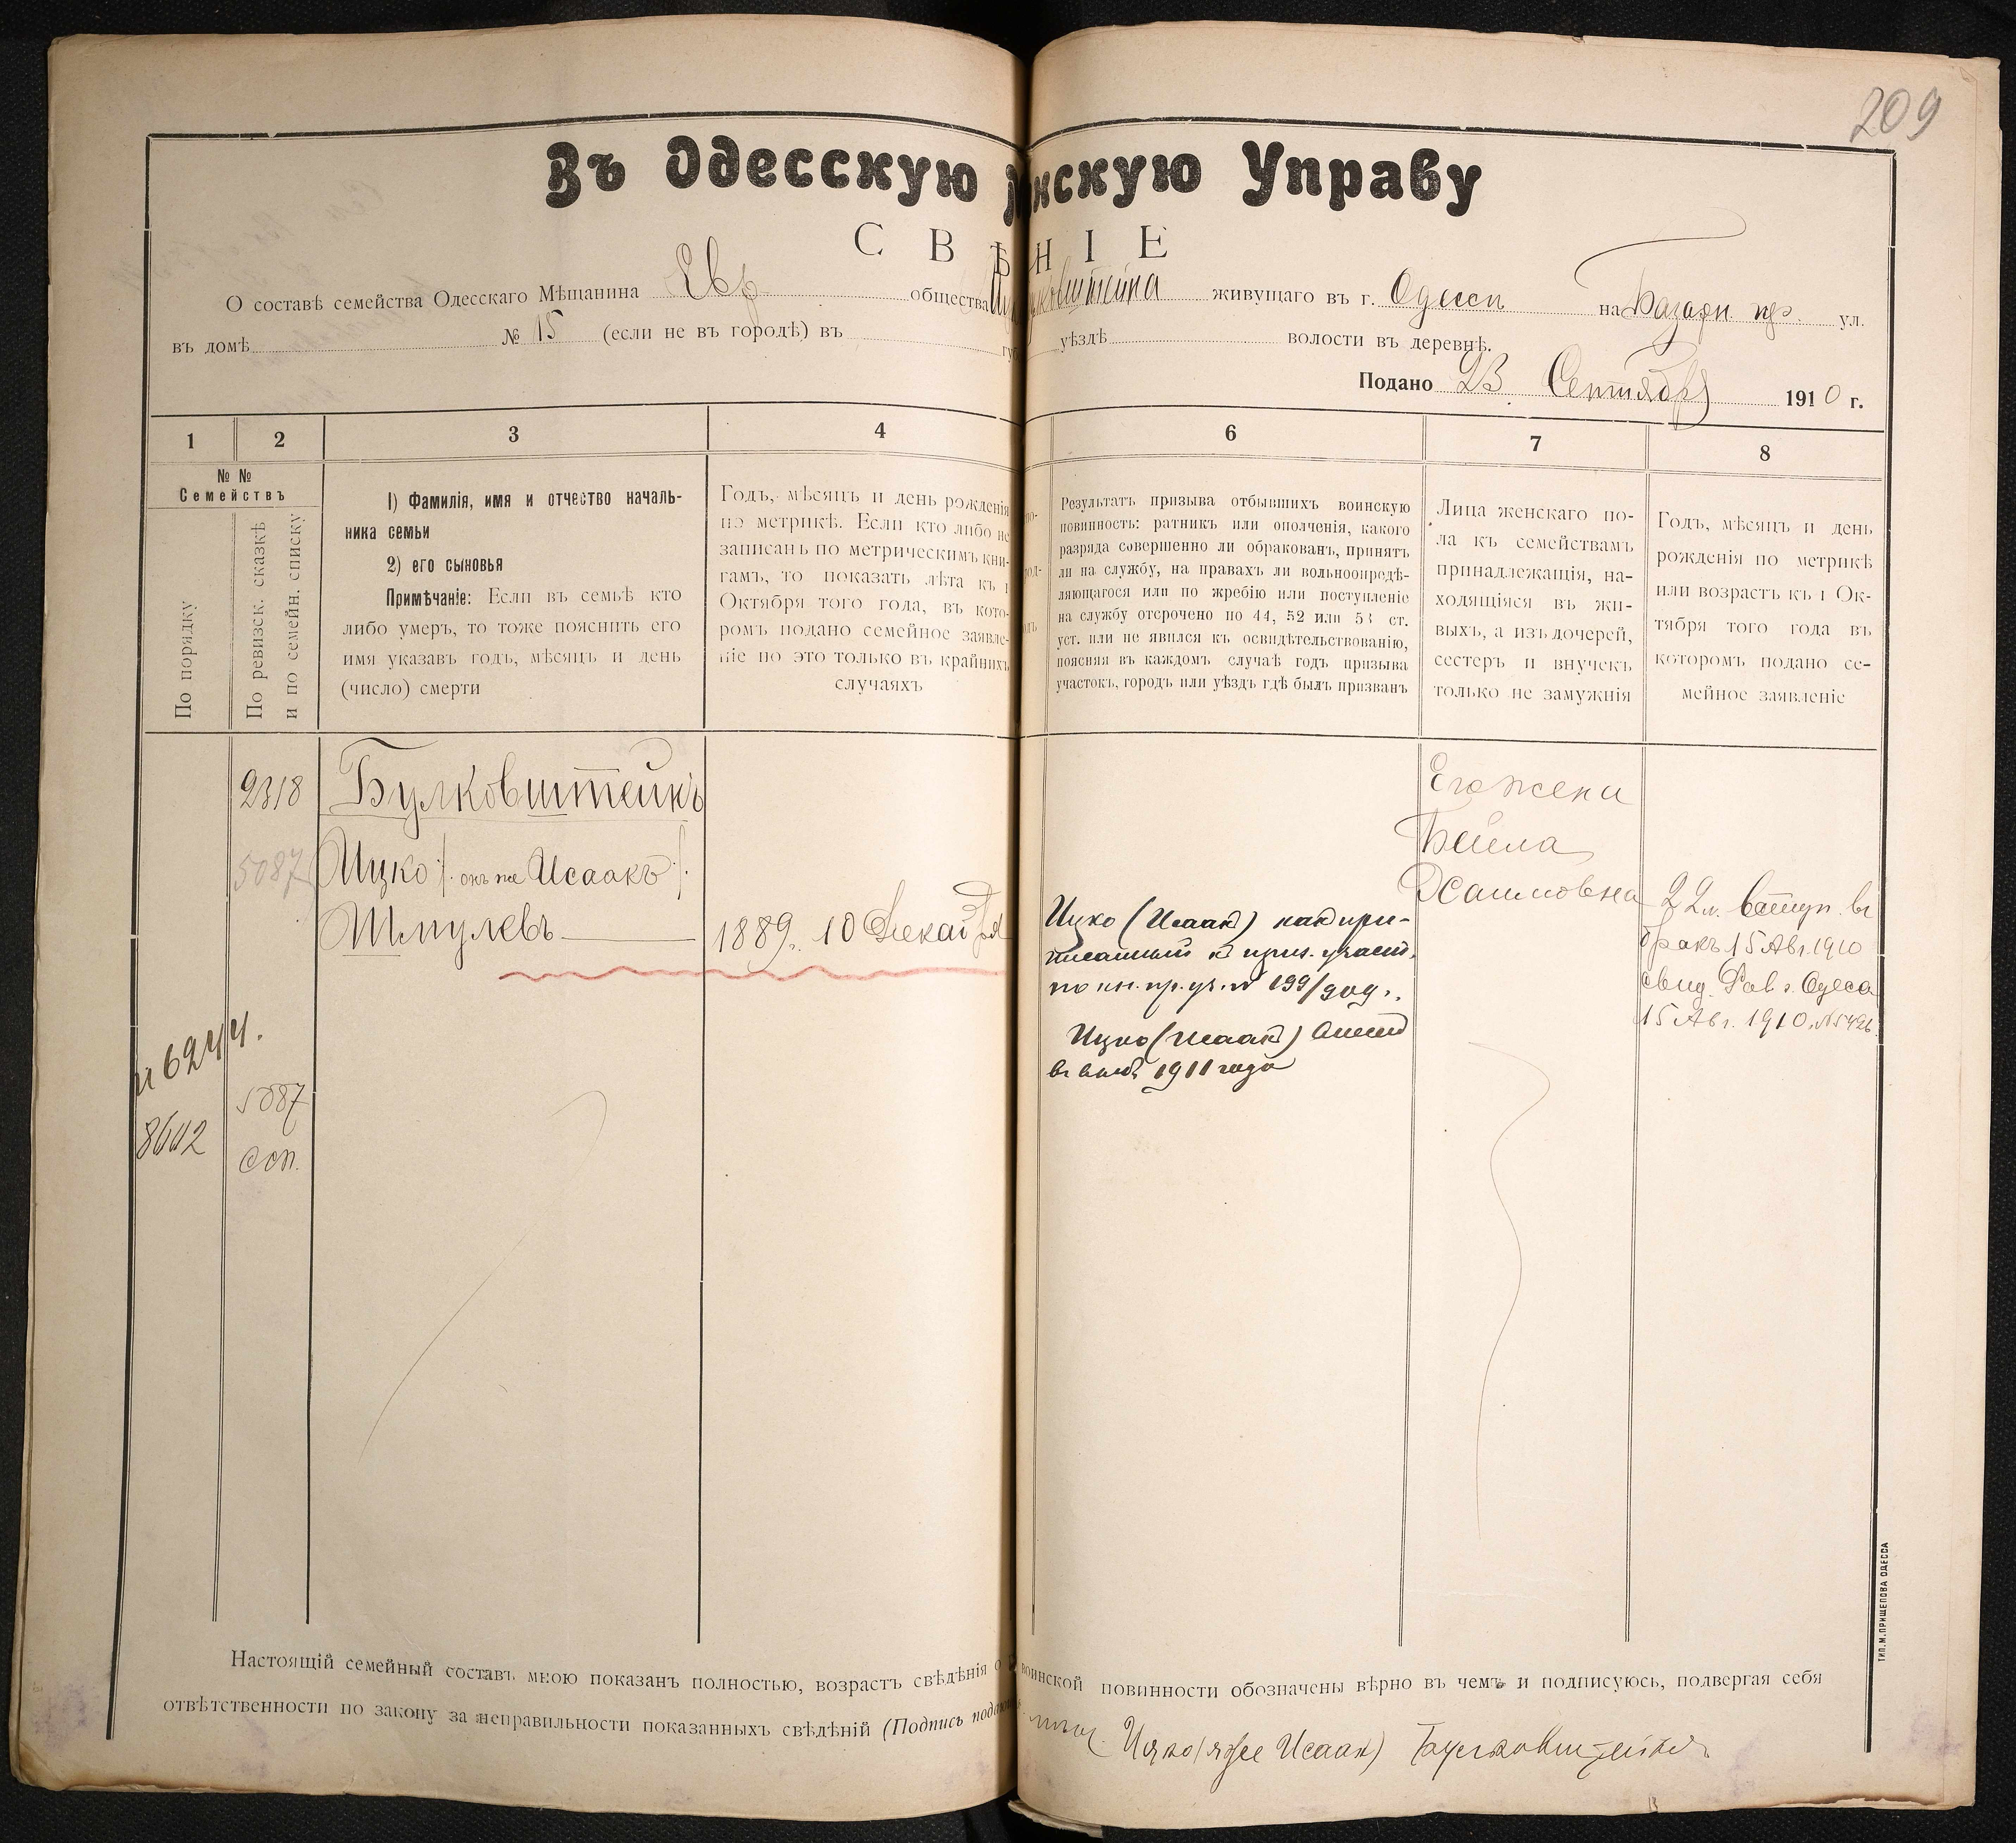 209
Въ Одесскую нскую Управу
СВѢ НІЕ
О составѣ семейства Одесскаго Мѣщанина Евр общества Иц улковштейна живущаго въ г. Одессѣ на Базарн. ул.
въ домѣ № 15 (если не въ городѣ) въ гу уѣздѣ волости въ деревнѣ.
Подано 23 Сентября 1910 г.
1 2 3 4 6 7 8
№ №
Семействъ
По порядку
По ревизск. сказкѣ
и по семейн. списку
1) Фамилія, имя и отчество началь-
ника семьи
2) его сыновья
Примѣчаніе: Если въ семьѣ кто
либо умеръ, то тоже пояснить его
имя указавъ годъ, мѣсяцъ и день
(число) смерти
Годъ, мѣсяцъ и день рожденія
по метрикѣ. Если кто либо не
записанъ по метрическимъ кни-
гамъ, то показать лѣта къ 1
Октября того года, въ кото-
ромъ подано семейное заявле-
ніе но это только въ крайнихъ
случаяхъ
Результатъ призыва отбывшихъ воинскую
повинность: ратникъ или ополченія, какого
разряда совершенно ли обракованъ, принятъ
ли на службу, на правахъ ли вольноопредѣ-
ляющагося или по жребію или поступленіе
на службу отсрочено по 44, 52 или 53 ст.
уст. или не явился къ освидѣтельствованію,
поясняя въ каждомъ случаѣ годъ призыва
участокъ, городъ или уѣздъ гдѣ былъ призванъ
Лица женскаго по-
ла къ семействамъ
принадлежащія, на-
ходящіяся въ жи-
выхъ, а изъ дочерей,
сестеръ и внучекъ
только не замужнія
Годъ, мѣсяцъ и день
рожденія по метрикѣ
или возрастъ къ 1 Ок-
тября того года въ
которомъ подано се-
мейное заявленіе
2318
5087
Булковштейнъ
Ицко /. онъ же Исаакъ /.
Шмулевъ
1889. 10 Декабря
Ицко (Исаак) как при-
писанный к приз. участ.
по кн. пр. уч. № 199/909 г.
Ицко (Исаак)
1911 года
Его жена
Бейла
Хаимовна
22 л. вступ. въ
бракъ 15 Авг. 1910
свид. Рав. г. Одесса
15 Авг. 1910. №
и 6244.
8642
5087
соп.
Настоящій семейный составъ мною показанъ полностью, возрастъ свѣдѣнія о воинской повинности обозначены вѣрно въ чемъ и подписуюсь, подвергая себя
отвѣтственности по закону за неправильности показанныхъ свѣдѣній (Подпись пода
Ицко (я же Исаак) Булковштейнъ
ТИП. М. ПРИЩЕПОВА ОДЕССА